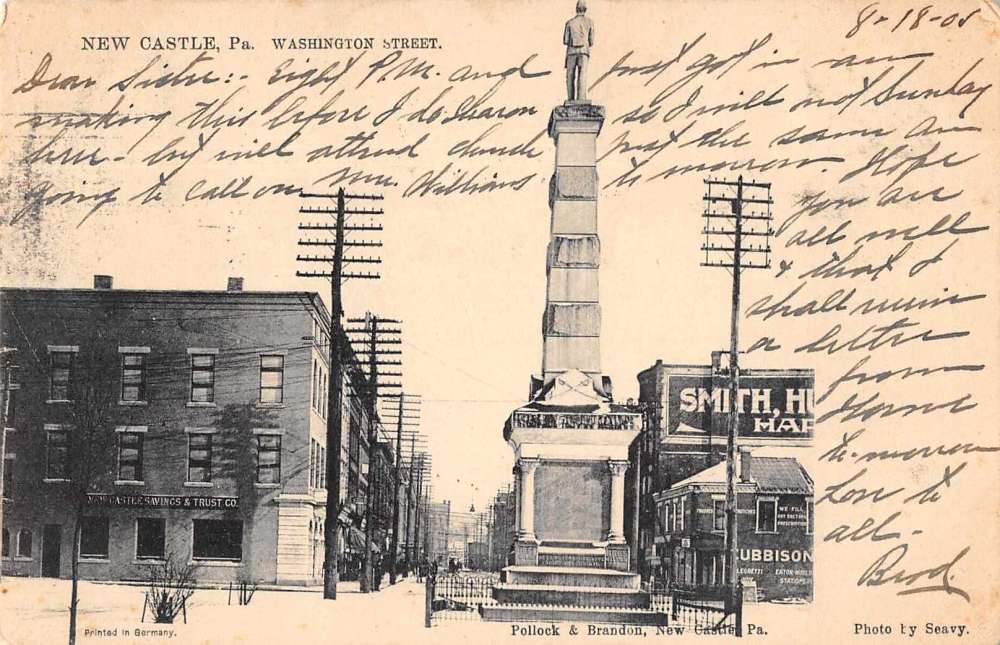 NEW CASTLE, Pa. WASHINGTON STREET.
8-18-05
Dear Sister:- Eight P.M. and just got in am
making this before I do Sharon so I will not Sunday
here - but will attend church just the same am
going to call on Mr. Williams to-morrow. Hope
you are
all well
& that I
shall receive
a letter
from
Home
to-morrow
Love to
all-
Brod.
SMITH, H
HA
NEW CASTLE SAVINGS & TRUST CO.
WE FILL
ANY DOCTOR
PRESCRIPTION
UBBISON
Printed in Germany.
Pollock & Brandon, New Castle, Pa.
Photo by Seavy.